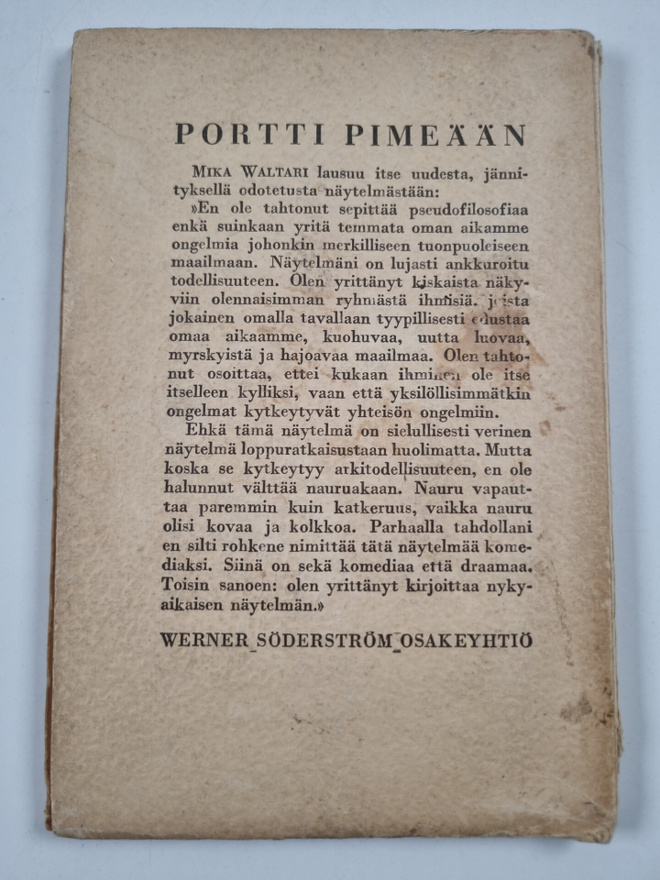 PORTTI PIMEÄÄN
MIKA WALTARI lausuu itse uudesta, jänni-
tyksellä odotetusta näytelmästään:
»En ole tahtonut sepittää pseudofilosofiaa
enkä suinkaan yritä temmata oman aikamme
ongelmia johonkin merkilliseen tuonpuoleiseen
maailmaan. Näytelmäni on lujasti ankkuroitu
todellisuuteen. Olen yrittänyt kiskaista näky-
viin olennaisimman ryhmästä ihmisiä, joista
jokainen omalla tavallaan tyypillisesti edustaa
omaa aikaamme, kuohuvaa, uutta luovaa,
myrskyistä ja hajoavaa maailmaa. Olen tahto-
nut osoittaa, ettei kukaan ihminen ole itse
itselleen kylliksi, vaan että yksilöllisimmätkin
ongelmat kytkeytyvät yhteisön ongelmiin.
Ehkä tämä näytelmä on sielullisesti verinen
näytelmä loppuratkaisustaan huolimatta. Mutta
koska se kytkeytyy arkitodellisuuteen, en ole
halunnut välttää nauruakaan. Nauru vapaut-
taa paremmin kuin katkeruus, vaikka nauru
olisi kovaa ja kolkkoa. Parhaalla tahdollani
en silti rohkene nimittää tätä näytelmää kome-
diaksi. Siinä on sekä komediaa että draamaa.
Toisin sanoen: olen yrittänyt kirjoittaa nyky-
aikaisen näytelmän.»
WERNER SÖDERSTRÖM OSAKEYHTIÖ